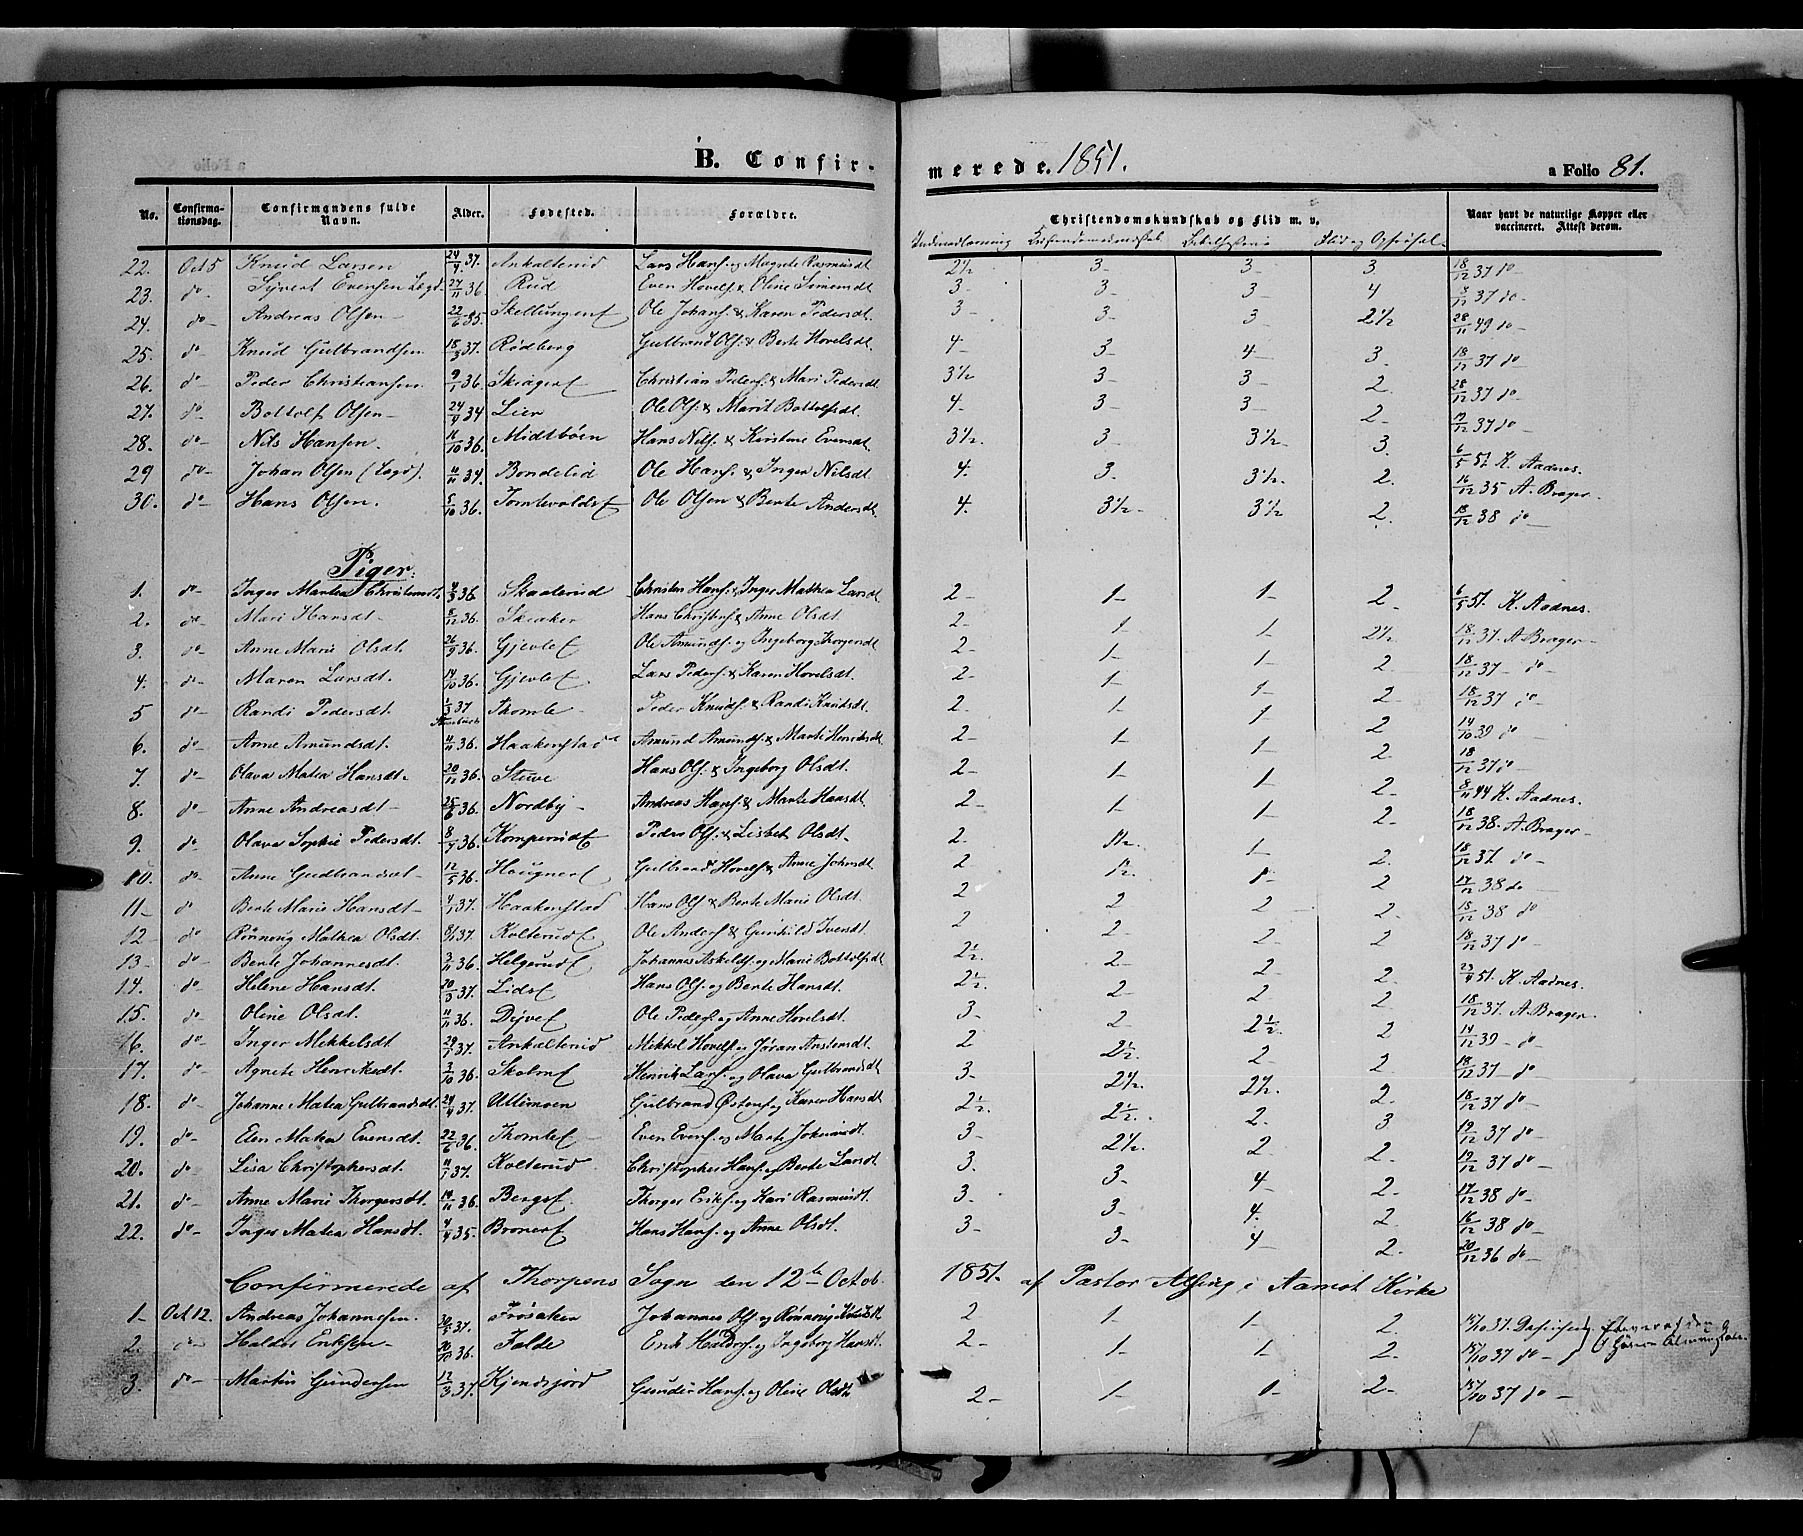 B. Confir-
merede. 1851.
a Folio 81.
No. Confirma-tionsdag. Confirmandens fulde Navn. Alder. Fødested. Forældre. Christendomskundskab og Flid m. v. Naar havt de naturlige Kopper eller vaccineret. Attest derom.
22. Oct 5 Knud Larsen 24/4 37. Ankalterud Lars Hans. og Magrete Rasmusdt 2½ 3- 3- 3 18/12 37 do-
23. do- Syvert Evensen Legd- 27/11 36. Rud Even Hovels. & Oline Simensdt 3- 3- 3- 4 8/12 37 do-
24. do- Andreas Olsen- 22/6 35. Ole Johans. & Karen Pedersdt. 3- 3- 3- 2½ 28/11 49 do-
25. do- Knud Gulbrandsen 18/3 37. Rødberg Gulbrand Ols. & Berte Hovelsdt. 4- 3- 4- 3. 18/12 37 do
26. do- Peder Christiansen. 9/1 36. Christian Peders. & Mari Pedersdt 3½ 3- 3- 2. 28/12 37 do
27. do- Bottolf Olsen- 24/9 34 Lier Ole Ols. & Marit Bottolfsdt. 4- 3- 3- 2. 37 do-
28. do- Nils Hansen. 36. Midtbøen Hans Nils. & Kirstine Evensdt. 3½. 3- 3½- 3. 6/5 51 K. Aadnes.
29 do- Johan Olsen (Legd). 4/11 34. Bondelid Ole Hans. & Inger Nilsdt. 4. 3. 3½. 2. 16/12 35 A. Brager-
30. d- Hans Olsen. 5/10 36. Ole Olsen & Berte Andersdt. 4. 3½- 3½ 2. 18/12 38 do-
Piger:
1. do- Inger Martea Christensdt. 4/3 36. Skaaterud Christen Hans. & Inger Mathea Larsdt 2- 1- 1- 2 6/5 51. K. Aadnes.
2. do- Mari Hansdt- 8/12 36. Skiaker Hans Christens. & Anne Olsdt. 2- 1- 1- 2½ 18/12 37. A Brager-
3. do- Anne Marie Olsdt. 26/9 36. Ole Amunds. og Ingeborg Thorgersdt 2- 1- 1- 2 18/12 37- do
4. do- Maren Larsdt. 14/10 36. Lars Peders. & Karen Hovelsdt. 2- 1- 1- 2 18/12 37 do-
5 do- Randi Pedersdt. 1/3 37 Thomle- Peder Knuds. & Randi Knudsdt. 2- 1- 1- 2 14/10 39 do-
6. do- Anne Amundsdt. 4/11 36. Haakenstad Amund Amunds. & Marte Henriksdt 2- 1- 1- 2. 18/12 37 do-
7. do- Olava Matea Hansdt- 20/12 36. Stuve Hans Ols. & Ingeborg Olsdt. 2- 1- 1- 2- 44 K. Aadnes.
8. do- Anne Andreasdt- 25/6 36. Nordby- Andreas Hans. & Marte Hansdt. 2- 1- 1- 2. 18/12 38. A. Brager-
9. do Olava Sophie Pedersdt. 8/9 36. Peder Ols. & Lisbet Olsdt- 2. 1½. 1- 2. 18/12 37 do-
10. do- Anne Gudbrandsdt- 12/5 36. Gulbrand Hovels. & Anne Johnsdt 2 1½. 1- 2 17/12 38 do-
11- do Berte Marie Hansdt- 4/1 37. Haakenstad Hans Ols. & Berte Marie Olsdt. 2 2 2- 2. 18/12 38 do
12 do Rønnoug Mathea Olsdt. 8/1 37. Ole Anders. & Gunhild Iversdt 2 2- 2 2 18/12 37 do-
13- do- Berte Johannesdt. 3/11 36. Johannes Askelds. og Marie Bottolfsdt 2½. 2- 2- 2. 23/4 51. K. Aadnes.
14. do- Helene Hansdt. 20/3 37. Hans Ols. og Berte Hansdt. 2½. 2- 2 2 18/12 37. A. Brager.
15. do- Oline Olsdt. 11/11 36. Ole Peders. og Anne Hovelsdt. 3- 2- 2½. 2 14/12 39- do
16. do- Inger Mikkelsdt. 29/1 37. Ankalterud Mikkel Hovels. og Jøran Anstensdt. 2 2½. 2- 2 18/12 37- do-
17. do- Agnete Henriksdt. 3/10 36. Henrik Lars. og Olava Gulbrandsdt 3. 2½. 2½. 2. 18/12 37 do-
18. do- Johanne Matea Gulbrandsdt. 24/4 37. Ullimoen Gulbrand Østens. og Karen Hansdt 2½. 2½. 2. 3 19/12 37 do-
19. do- Elen Matea Evensdt. 22/6 36. Even Evens. og Marte Johansdt. 3- 2½- 2 2. 19/12 37 do-
20. do- Lisa Christophersdt. 11/1 37. Kolterud. Christopher Hans. og Berte Larsdt 3. 3- 4- 2. 17/12 38 do-
21. do- Anne Marie Thorgersdt. 19/11 36. Thorger Eriks. og Kari Rasmusdt. 3. 3- 4. 2. 16/12 38 do-
22. do- Inger Matea Hansdt. 4/4 35. Hans Hans. og Anne Olsdt. 3- 3- 4- 2. 20/12 36 do-
Confirmerede af Thorpens Sogn den 12te Octob. 1851. af Pastor Alsing i Aamot Kirke
1- Oct 12. Andreas Johannesen. 37. Frøsaken Johannes Ols. og Rønnoug Knudsdt 2 1- 1- 2. 37.
2. do- Haldor Eriksen- 36. Falde Erik Haldors. og Ingeborg Hansdt. 2- 1- 1- 2. 37 do-
3. do- Martin Gundersen 12/3 37. Kjendsjord Gunder Hans. og Oline Olsdt. 2- 1- 1- 2- 37 do-